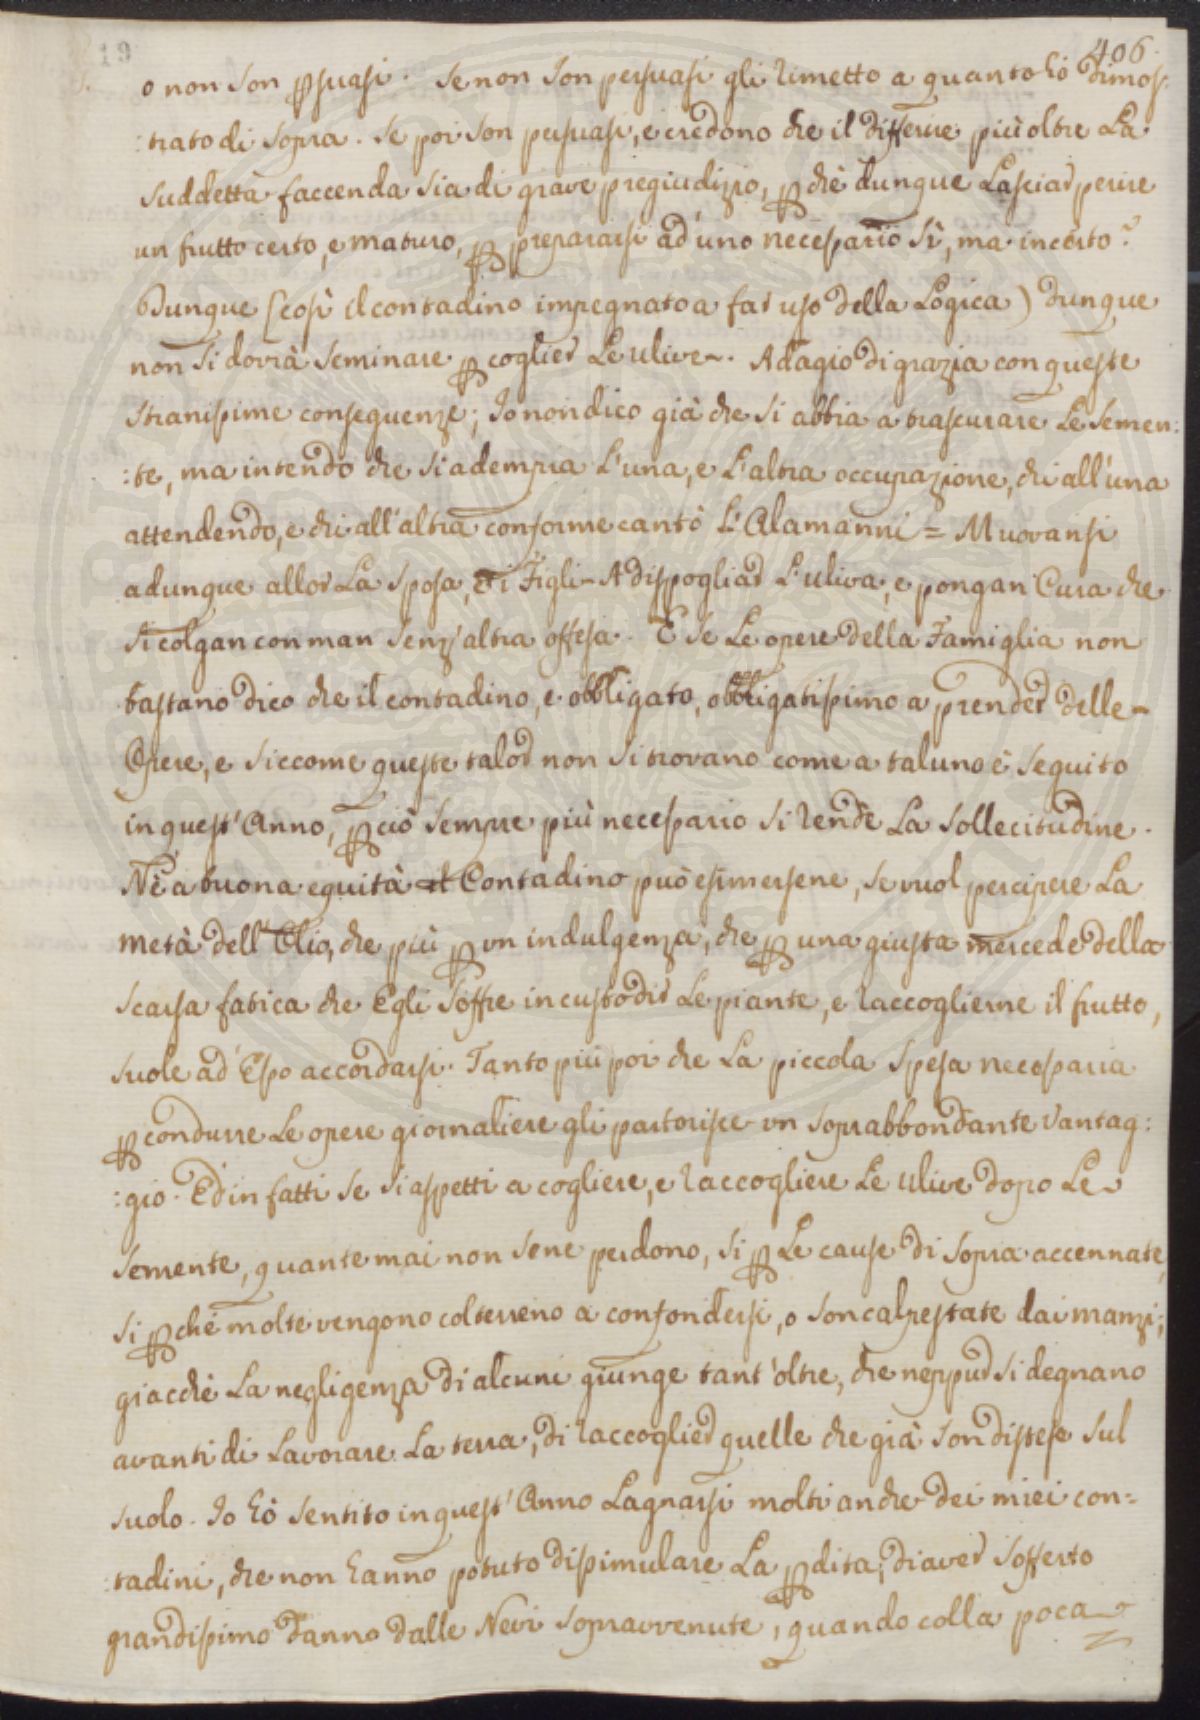 19
406.
o non son ꝑsuasi. Se non son persuasi gli rimetto a quanto hò dimos:
:trato di sopra. Se poi son persuasi, e credono che il differire più oltre La
suddetta faccenda sia di grave pregiudizio, ꝑchè dunque Lasciar perire
un frutto certo, e maturo, ꝑ prepararsi ad uno necessario sì, ma incerto?
Dunque (così il contadino impegnato a far uso della Logica) dunque
non si dovrà seminare ꝑ coglier Le ulive. Adagio di grazia con queste
stranissime conseguenze; Io non dico già che si abbia a trascurare Le semen:
:te, ma intendo che si adempia L'una, e L'altra occupazione, chi all'una
attendendo, e chi all'altra conforme cantò L'Alamanni = Muovansi
adunque allor La sposa, e i Figli - A dispogliar L'uliva, e pongan Cura che
si colgan con man senz'altra offesa. E se Le opere della Famiglia non
bastano dico che il contadino, è obbligato, obbligatissimo a prender delle
Opere, e siccome queste talor non si trovano come a taluno è seguito
in quest'Anno, ꝑciò sempre più necessario si rende La sollecitudine.
Nè a buona equità il Contadino può esimersene, se vuol percipere La
metà dell'Olio, che più ꝑ un indulgenza, che ꝑ una giusta mercede della
scarsa fatica che Egli soffre in custodir Le piante, e raccoglierne il frutto,
suole ad Esso accordarsi. Tanto più poi che La piccola spesa necessaria
ꝑ condurre Le opere giornaliere gli partorisce un soprabbondante Vantag:
:gio. Ed in fatti se si aspetti a cogliere, e raccogliere Le ulive dopo Le
semente, quante mai non sene perdono, sì ꝑ Le cause di sopra accennate,
sì ꝑchè molte vengono col terreno a confondersi, o son calpestate dai manzi;
giacchè La negligenza di alcuni giunge tant'oltre, che neppur si degnano
avanti di Lavorare La terra, di raccoglier quelle che già son distese sul
suolo. Io hò sentito in quest'Anno Lagnarsi molti anche dei miei con:
:tadini, che non hanno potuto dissimulare La ꝑdita, di aver sofferto
grandissimo danno dalle Nevi sopravvenute, quando colla poca